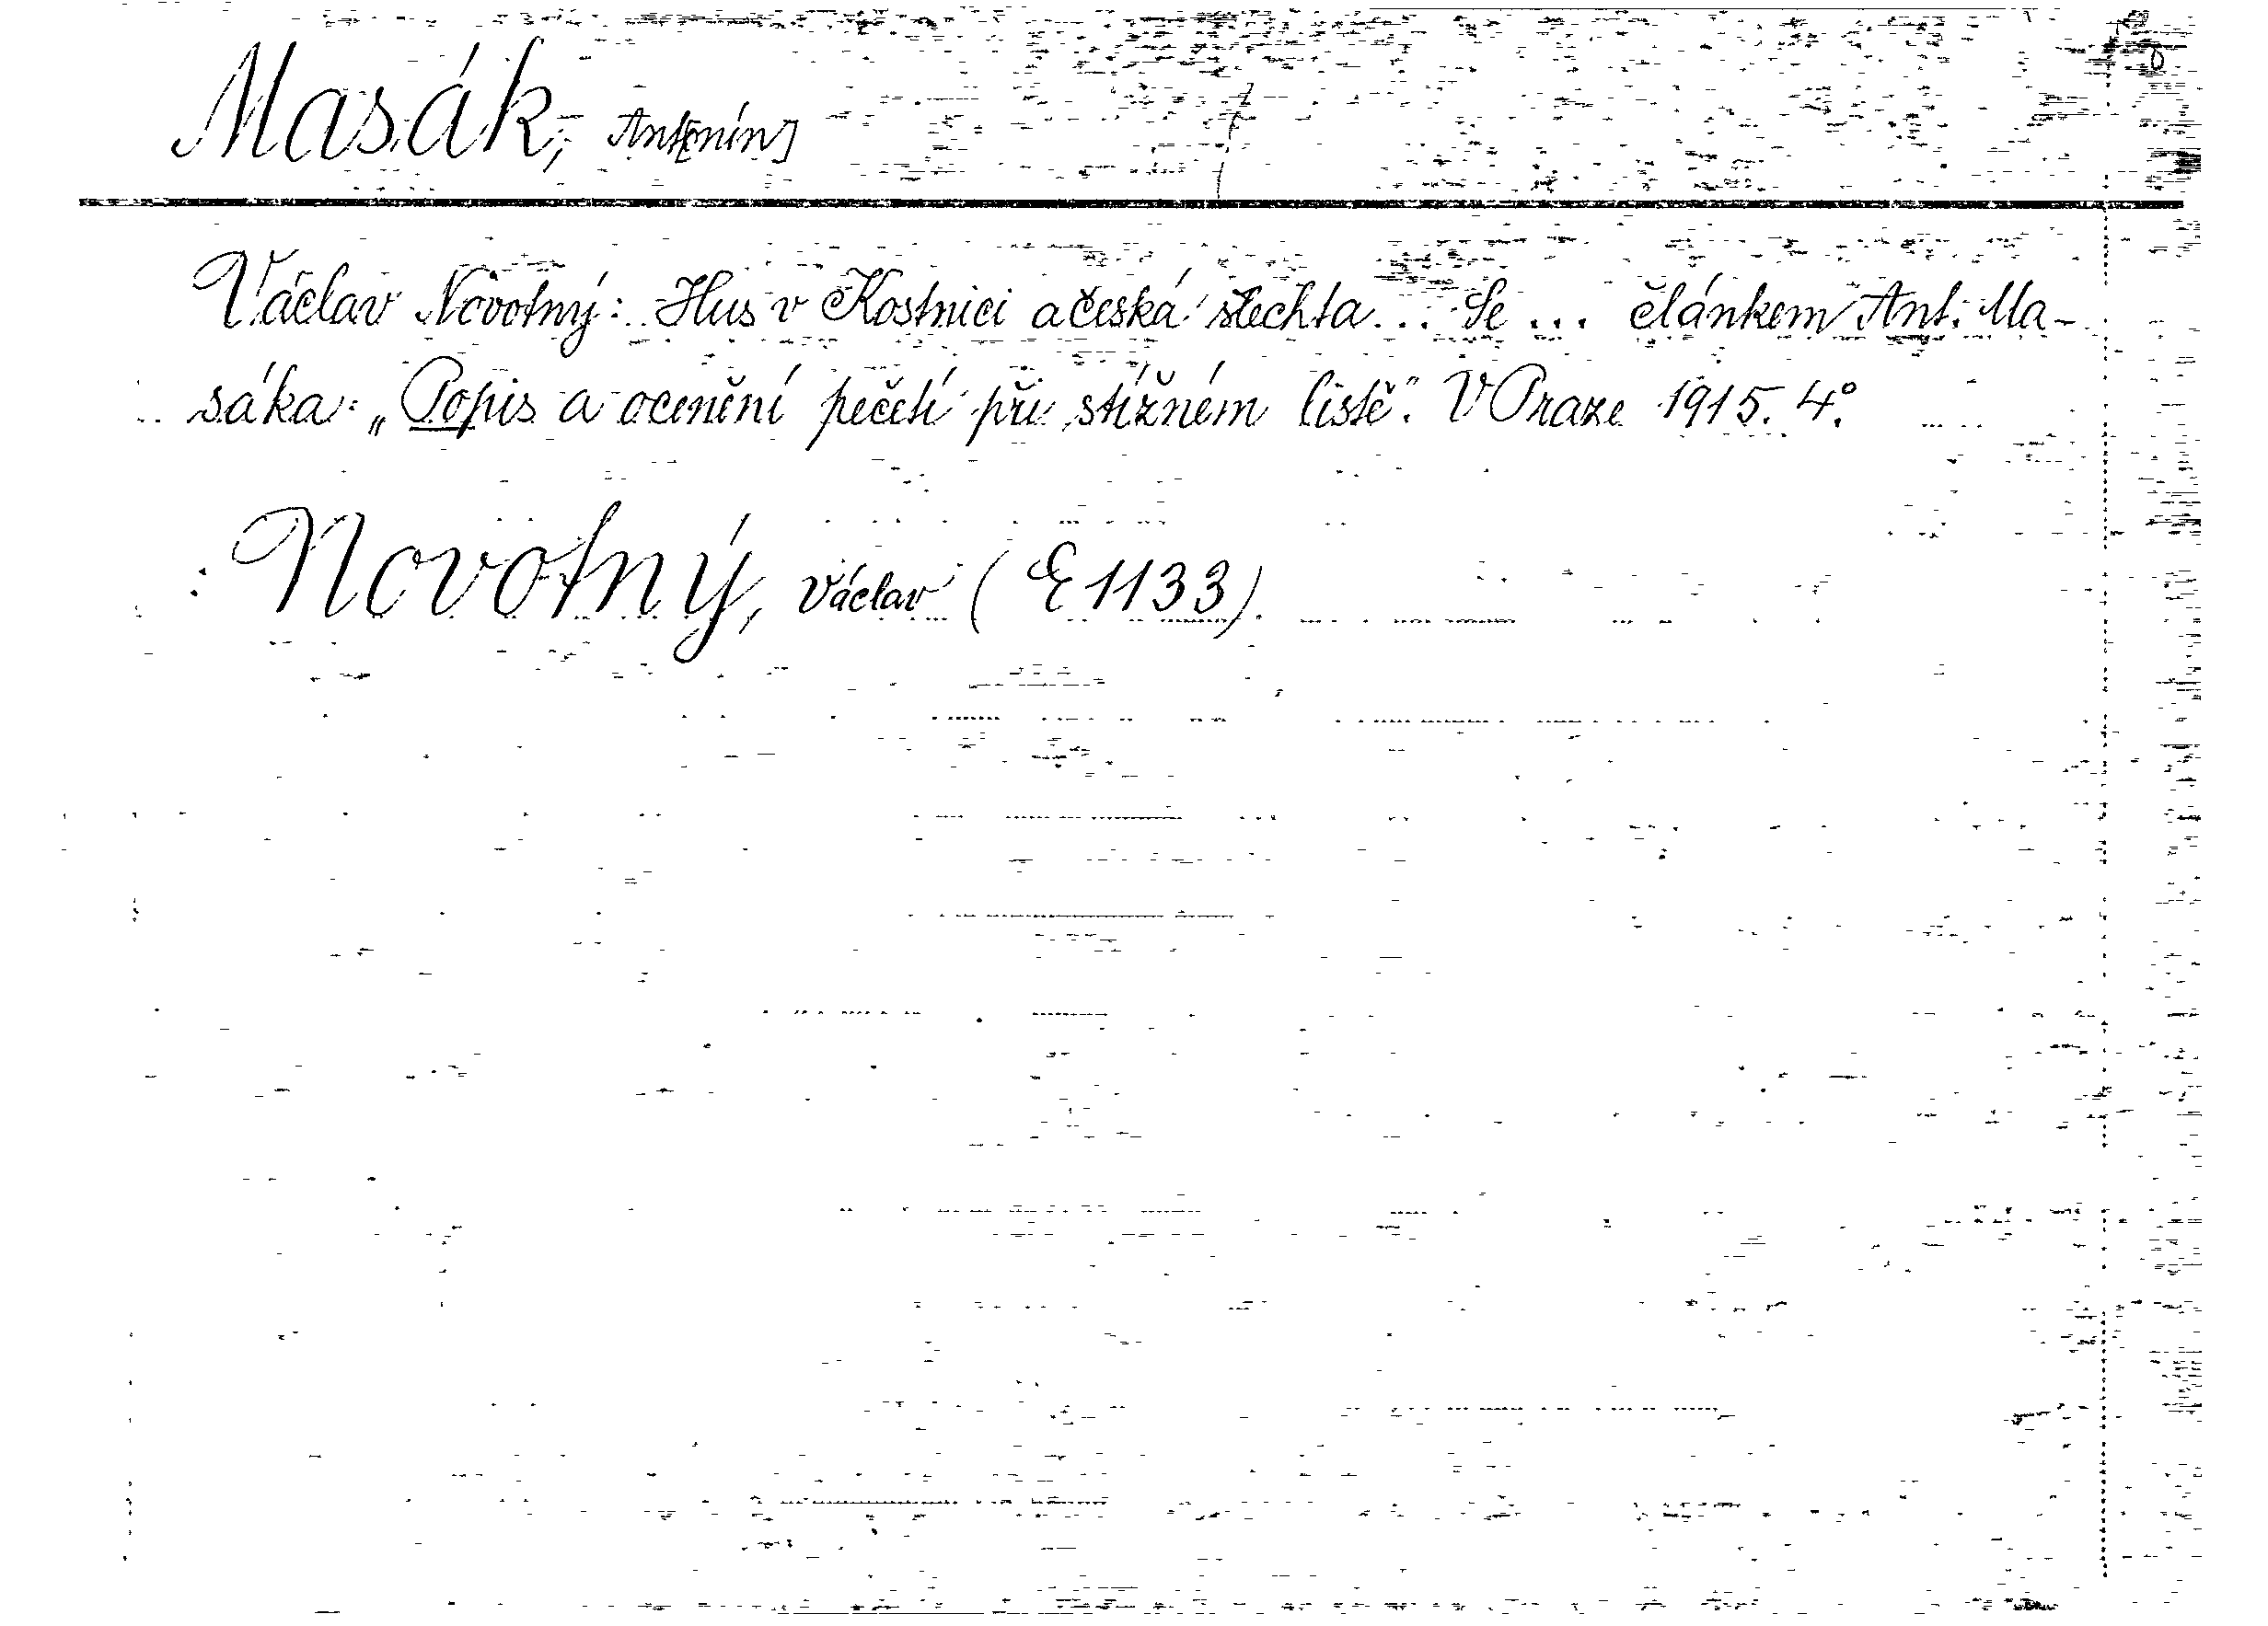 Masák, Ant[onín]
Václav Novotný: Hus v Kostnici a česká šlechta... Se ... článkem Ant. Ma-
sáka: „Popis a ocenění pečetí při stížném listě". V Praze 1915. 4°.
: Novotný, Václav (E 1133).